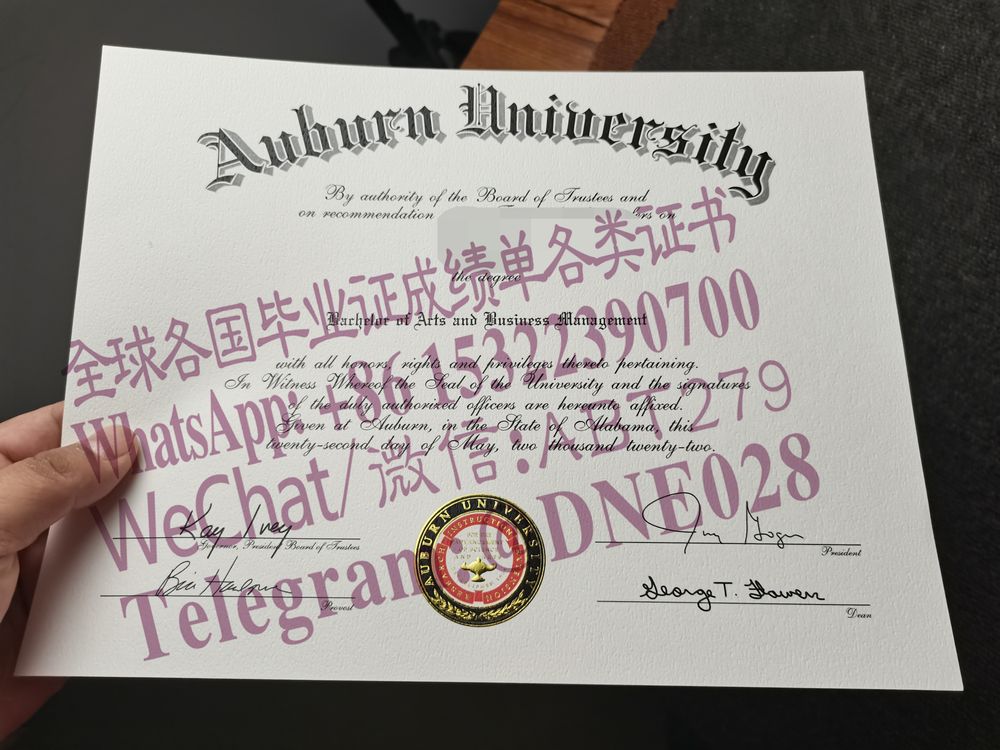 Auburn University
By authority of the Board of Trustees and
on recommendation
the degree
全球各国毕业证成绩单各类证书
Bachelor of Arts and Business Management
WhatsApp: +86 15322390700
with all honors, rights and privileges thereto pertaining.
In Witness Whereof the Seal of the University and the signatures
of the duly authorized officers are hereunto affixed.
Given at Auburn, in the State of Alabama, this
twenty-second day of May, two thousand twenty-two.
WeChat/微信:
Kay Ivey
Governor, President Board of Trustees
President
AUBURN UNIVERSITY
INSTRUCTION
RESEARCH
EXTENSION
Telegram
DNE028
Provost
George T. Flowers
Dean